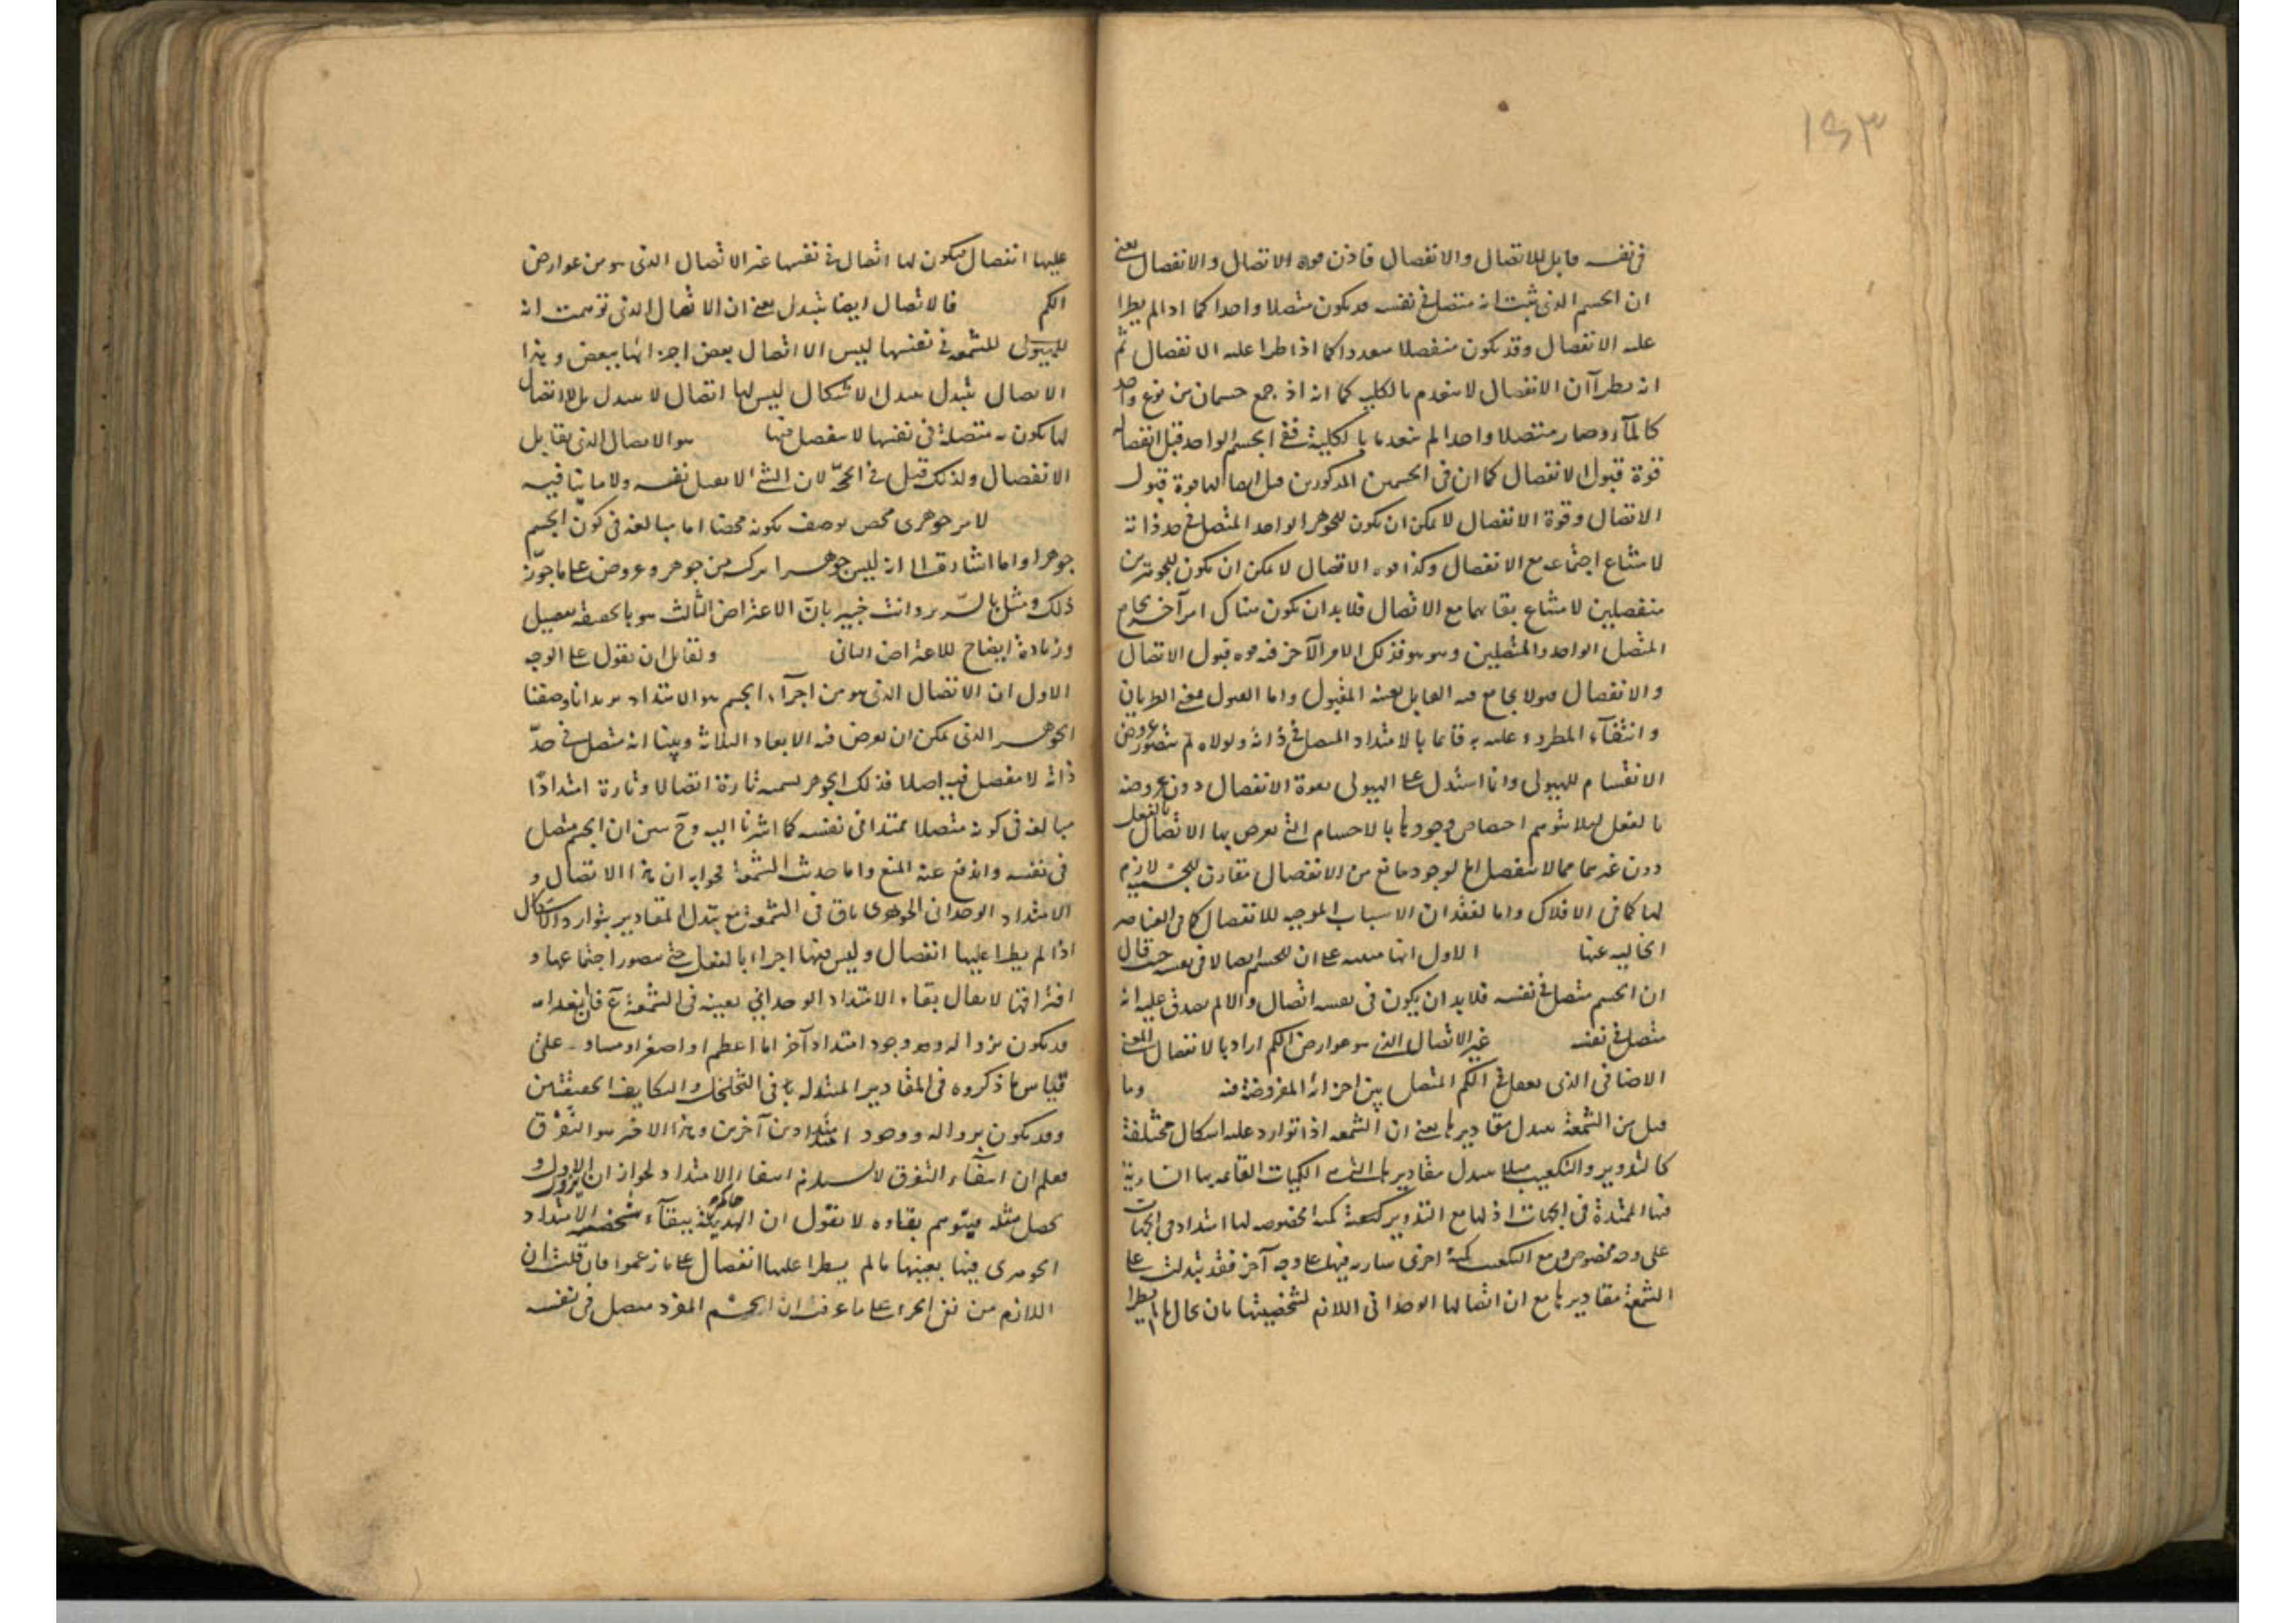 ١٤٣
في نفسه قابل للاتصال والانفصال فاذن قوة الاتصال والانفصال يعني
ان الجسم الذي ثبت انه متصل في نفسه قد يكون متصلا واحدا كما اذا لم يطرا
عليه الانفصال وقد يكون منفصلا متعددا كما اذا طرا عليه الانفصال ثم
انه بطرآن الانفصال لا ينعدم بالكلية كما انه اذ جمع جسمان من نوع واحد
كالمآء وصار متصلا واحدا لم ينعدما بالكلية ففي الجسم الواحد قبل انفصاله
قوة قبول الانفصال كما ان في الجسمين المذكورين قبل اتصالهما قوة قبول
الاتصال وقوة الانفصال لا يمكن ان يكون للجوهر الواحد المتصل في حد ذاته
لامتناع اجتماعه مع الانفصال وكذا قوة الاتصال لا يمكن ان يكون للجوهرين
منفصلين لامتناع بقائهما مع الاتصال فلا بد ان يكون هناك امر آخر يجامع
المتصل الواحد والمتصلين وهو هو فذلك الامر الآخر فيه قوة قبول الاتصال
والانفصال قبولا يجامع فيه القابل بعينه المقبول واما القبول بمعنى الطريان
وانتفآء المطروء عليه به قائما بالامتداد المتصل في ذاته ولولاه لم يتصور عروض
الانقسام للهيولى وانما استدل على الهيولى بقوة الانفصال دون عروضه
بالفعل لئلا يتوهم اختصاص وجودها بالاجسام التي يعرض لها الاتصال بالفعل
دون غيرها مما لا ينفصل اما لوجود مانع من الانفصال مقارن للجسمية لازم
لها كما في الافلاك واما لفقدان الاسباب الموجبه للانفصال كما في العناصر
الخاليه عنها الاول انها مبنيه على ان للجسم اتصالا في نفسه حيث قال
ان الجسم متصل في نفسه فلا بد ان يكون في نفسه اتصال والا لم يصدق عليه انه
متصل في نفسه غير الاتصال الذي هو عوارض الكم اراد بالاتصال المعنى
الاضافي الذي يعقل في الكم المتصل بين اجزائه المفروضة فيه وما
قيل من الشمعة يتبدل مقاديرها يعني ان الشمعه اذا توارد عليه اشكال مختلفة
كالتدوير والتكعيب مثلا يتبدل مقاديرها التي هي الكميات القائمه بها السارية
فيها الممتدة في الجهات اذ لها مع التدوير كمية مخصوصه لها امتداد في الجهات
على وجه مخصوص ومع التكعيب كمية اخرى ساريه فيها على وجه آخر فقد تبدلت على
الشمعة مقاديرها مع ان اتصالها الوحداني اللازم لشخصيتها باق بحاله ما لم يطرا
عليها انفصال فيكون لها اتصال في نفسها غير الاتصال الذي هو من عوارض
الكم فالاتصال ايضا يتبدل يعني ان الاتصال الذي توهمت انه
للهيولى للشمعه في نفسها ليس الا اتصال بعض اجزائها ببعض وهذا
الاتصال يتبدل بتبدل الاشكال ليس لها اتصال لا يتبدل بل لا اتصال
لها يكون به متصلة في نفسها لا مفصل فيها هو الاتصال الذي يقابل
الانفصال ولذلك قيل في الحجة لان الشئ لا يقبل نفسه ولا ما ينافيه
لامر جوهري محض يوصف بكونه محضا اما مبالغه في كون الجسم
جوهرا واما اشارة الى انه ليس جوهرا مركبا من جوهر وعرض على ما جوز
ذلك ومثل بالسرير وانت خبير بان الاعتراض الثالث هو بالحقيقه تفصيل
وزيادة ايضاح للاعتراض الثاني ولقائل ان يقول على الوجه
الاول ان الاتصال الذي هو من اجزآء الجسم هو الامتداد يريد انا وصفنا
الجوهر الذي يمكن ان يفرض فيه الابعاد الثلاثة وبينا انه متصل في حد
ذاته لا مفصل فيه اصلا فذلك الجوهر نسميه تارة اتصالا وتارة امتدادا
مبالغه في كونه متصلا ممتدا في نفسه كما اشرنا اليه وح تبين ان الجسم متصل
في نفسه واندفع عنه المنع واما حديث الشمعة فجوابه ان هذا الاتصال و
الامتداد الوحداني الجوهري باق في الشمعة مع تبدل المقادير بتوارد الاشكال
اذا لم يطرا عليها انفصال وليس فيها اجزاء بالفعل حتى يتصور اجتماعها و
افتراقها لا يقال بقاء الامتداد الوحداني بعينه في الشمعة ح فان انعدامه
قد يكون بزواله ووجود امتداد آخر اما اعظم او اصغر او مساو على
قياس ما ذكروه في المقادير المتبدله في التخلخل والتكاثف الحقيقيين
وقد يكون بزواله ووجود امتدادين آخرين وهذا الاخير هو التفرق
فعلم ان انتفآء التفرق لا يستلزم انتفاء الامتداد لجواز ان يزول و
يحصل مثله فيتوهم بقاؤه لا نقول ان البديهة حاكمة ببقآء شخص الامتداد
الجوهري فيها بعينها ما لم يطرا عليها انفصال على ما زعموا فان قلت ان
اللازم من نفي الجزء على ما عرفت ان الجسم المفرد متصل في نفسه